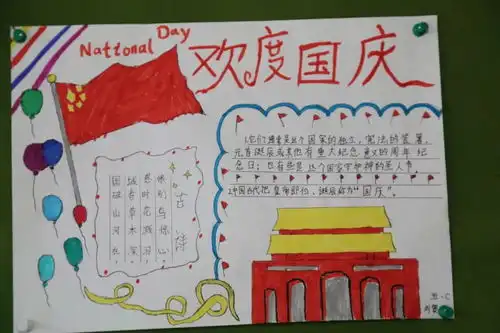 National Day
欢度国庆
它们通常是这个国家的独立、宪法的签署、
元首诞辰或其他有重大纪念意义的周年纪
念日；也有些是这个国家守护神的圣人节。
中国古代把皇帝即位、诞辰称为“国庆”。
古诗
国破山河在，
城春草木深。
感时花溅泪，
恨别鸟惊心。